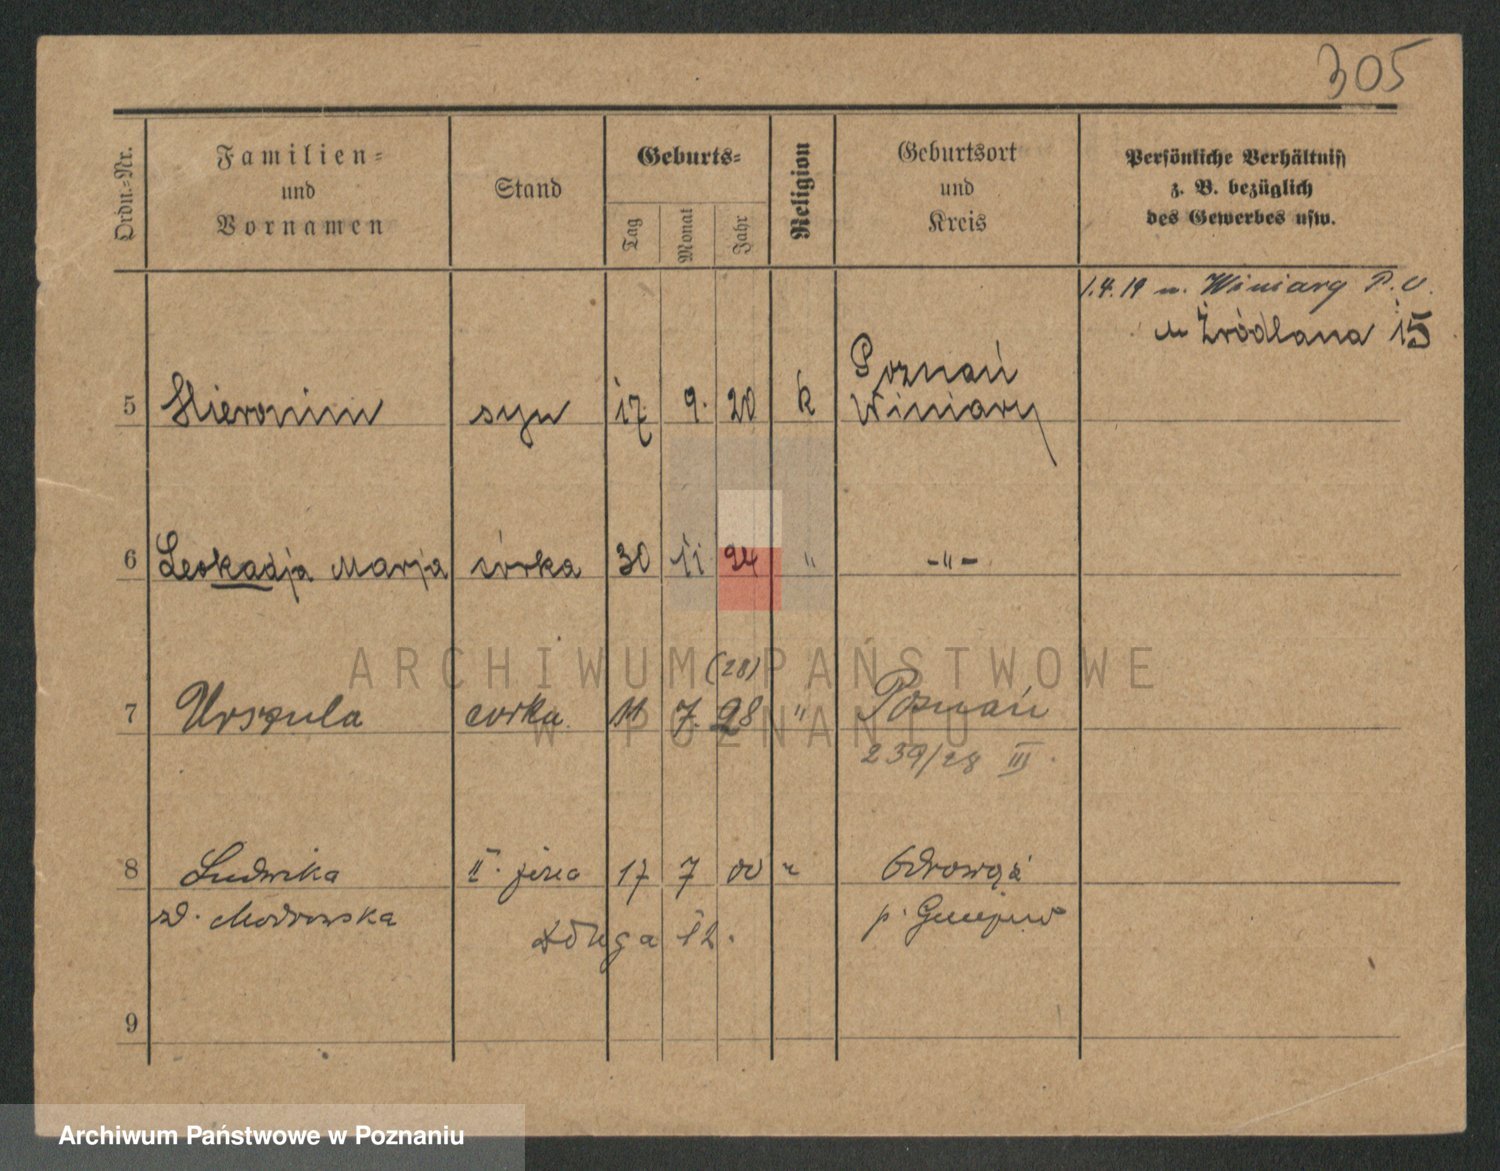 305
Ordn.-Nr.
Familien-
und
Vornamen
Stand
Geburts-
Tag
Monat
Jahr
Religion
Geburtsort
und
Kreis
Persönliche Verhältniss
z. B. bezüglich
des Gewerbes usw.
1.4.19 n. Winiary P. U.
Źródlana 15
Poznań
5 Hieronim syn 17. 9. 20 k Winiary
6 Leokadja Marja córka 30 11 24 " -"-
(28)
7 Urszula córka 11 7. 28 " Poznań
239/28 III.
8 Ludwika II. 17 7 00 " Odrowąż
zd. Modrowska p.
Długa 12.
9
ARCHIWUM PAŃSTWOWE
W POZNANIU
Archiwum Państwowe w Poznaniu